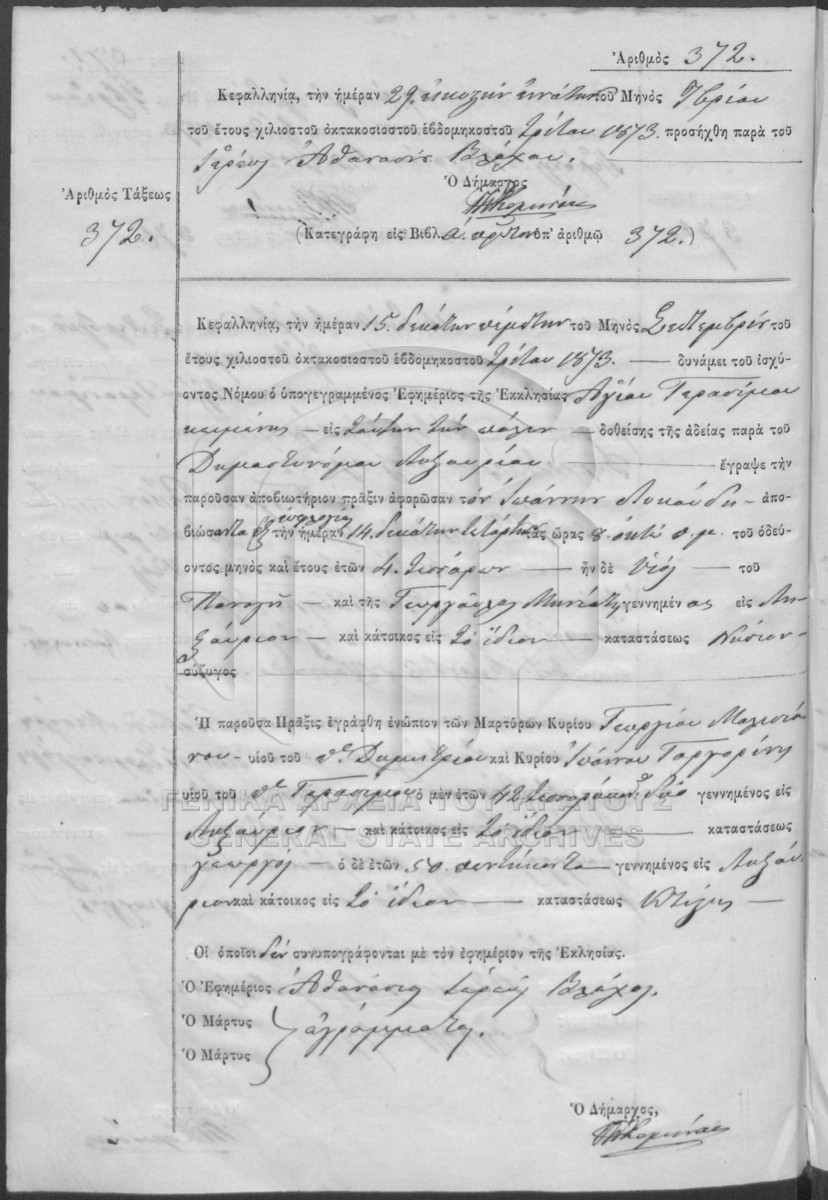 Ἀριθμὸς 372.
Κεφαλληνίᾳ, τὴν ἡμέραν 29. εἰκοστὴν ἐννάτην τοῦ Μηνὸς 7βρίου
τοῦ ἔτους χιλιοστοῦ ὀκτακοσιοστοῦ ἑβδομηκοστοῦ τρίτου 1873. προσήχθη παρὰ τοῦ
Ἱερέως Ἀθανασίου Βλάχου.
Ὁ Δήμαρχος
Ἀριθμὸς Τάξεως
372.
(Κατεγράφη εἰς Βιβλ. α. πρῶτον ὑπ' ἀριθμῷ 372.)
Κεφαλληνίᾳ, τὴν ἡμέραν 15. δεκάτην πέμπτην τοῦ Μηνὸς Σεπτεμβρίου τοῦ
ἔτους χιλιοστοῦ ὀκτακοσιοστοῦ ἑβδομηκοστοῦ τρίτου 1873. — δυνάμει τοῦ ἰσχύ-
οντος Νόμου ὁ ὑπογεγραμμένος Ἐφημέριος τῆς Ἐκκλησίας Ἁγίου Γερασίμου
κειμένης — εἰς ταύτην τὴν πόλιν — δοθείσης τῆς ἀδείας παρὰ τοῦ
Δημαστυνόμου Ληξουρίου — ἔγραψε τὴν
παροῦσαν ἀποβιωτήριον πρᾶξιν ἀφορῶσαν τὸν Ἰωάννην Λυκούδη — ἀπο-
βιώσαντα ἐξ εὐφλογίας τὴν ἡμέραν 14. δεκάτην τετάρτην τὰς ὥρας 8. ὀκτὼ π.μ. τοῦ ὁδεύ-
οντος μηνὸς καὶ ἔτους ἐτῶν 4. τεσσάρων — ἦν δὲ υἱὸς — τοῦ
Παναγῆ — καὶ τῆς Γεωργούλας γεννημένος εἰς Λη-
ξούριον — καὶ κάτοικος εἰς τὸ ἴδιον — καταστάσεως Νήπιον —
σύζυγος
Ἡ παροῦσα Πρᾶξις ἐγράφθη ἐνώπιον τῶν Μαρτύρων Κυρίου Γεωργίου
υἱοῦ τοῦ Δημητρίου καὶ Κυρίου Ἰωάννου
υἱοῦ τοῦ Γερασίμου ὁ μὲν ἐτῶν 42 τεσσαράκοντα δύο γεννημένος εἰς
Ληξούριον — καὶ κάτοικος εἰς τὸ ἴδιον — καταστάσεως
γεωργὸς — ὁ δὲ ἐτῶν 50. πεντήκοντα — γεννημένος εἰς Ληξού-
ριον καὶ κάτοικος εἰς τὸ ἴδιον — καταστάσεως κτίστης —
Οἱ ὁποῖοι δὲν συνυπογράφονται μὲ τὸν ἐφημέριον τῆς Ἐκλησίας.
Ὁ Ἐφημέριος Ἀθανάσιος ἱερεὺς Βλάχος.
Ὁ Μάρτυς
Ὁ Μάρτυς
} ἀγράμματοι.
Ὁ Δήμαρχος,
ΓΕΝΙΚΑ ΑΡΧΕΙΑ ΤΟΥ ΚΡΑΤΟΥΣ
GENERAL STATE ARCHIVES